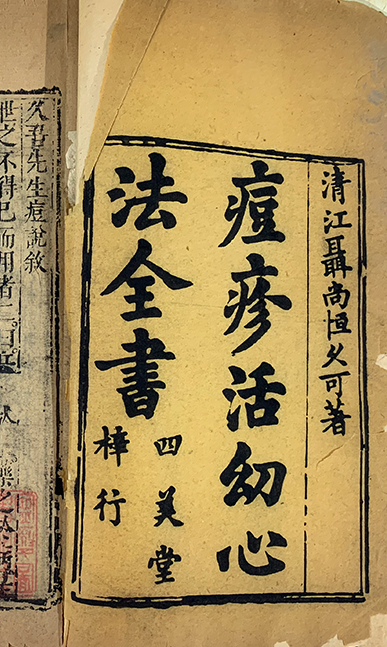 清江聶尚恒久可著
痘疹活幼心
法全書
四美堂
梓行
久吾先生痘說敘
之不得已而